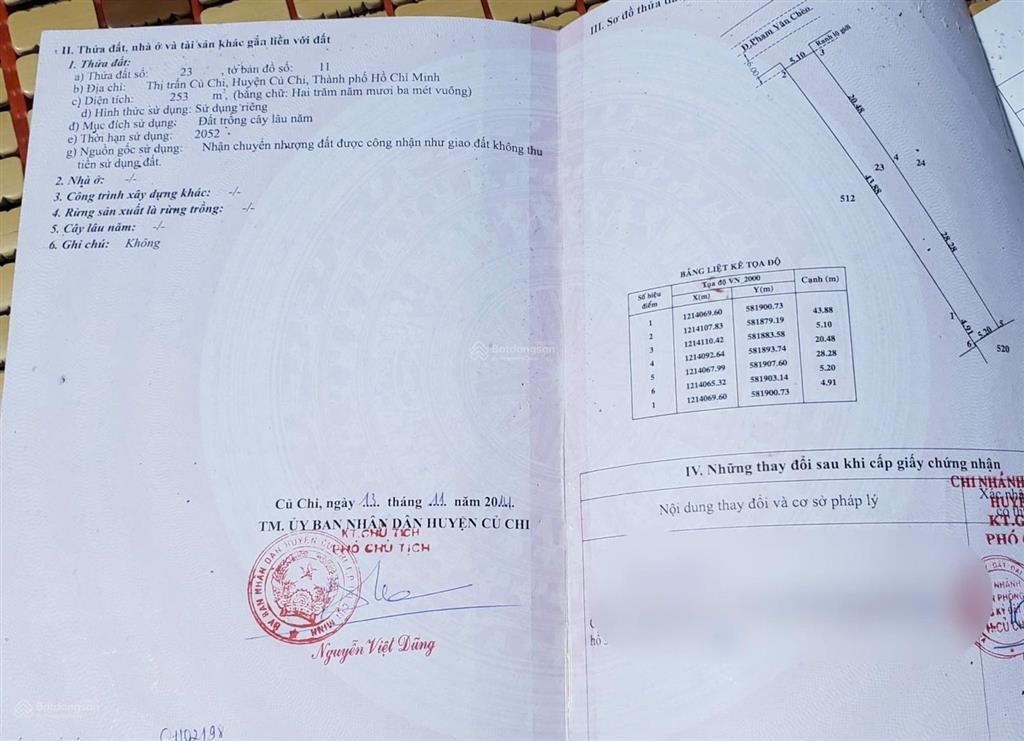 II. Thửa đất, nhà ở và tài sản khác gắn liền với đất
1. Thửa đất:
a) Thửa đất số: 23 , tờ bản đồ số: 11
b) Địa chỉ: Thị trấn Củ Chi, Huyện Củ Chi, Thành phố Hồ Chí Minh
c) Diện tích: 253 m², (bằng chữ: Hai trăm năm mươi ba mét vuông)
d) Hình thức sử dụng: Sử dụng riêng
đ) Mục đích sử dụng: Đất trồng cây lâu năm
e) Thời hạn sử dụng: 2052
g) Nguồn gốc sử dụng: Nhận chuyển nhượng đất được công nhận như giao đất không thu
tiền sử dụng đất.
2. Nhà ở: -/-
3. Công trình xây dựng khác: -/-
4. Rừng sản xuất là rừng trồng: -/-
5. Cây lâu năm: -/-
6. Ghi chú: Không
Củ Chi, ngày 13 tháng 11 năm 20
TM. ỦY BAN NHÂN DÂN HUYỆN CỦ CHI
KT.CHỦ TỊCH
PHÓ CHỦ TỊCH
Nguyễn Việt Dũng
III. Sơ đồ thửa
Đ.Phạm Văn Chèo
6.00
5.10
Ranh lộ giới
2
3
20.48
4
23
24
43.88
512
28.28
1
4.91
6
5.20
5
520
BẢNG LIỆT KÊ TỌA ĐỘ
Số hiệu điểm
Tọa độ VN_2000
Cạnh (m)
X(m)
Y(m)
1 1214069.60 581900.73
43.88
2 1214107.83 581879.19
5.10
3 1214110.42 581883.58
20.48
4 1214092.64 581893.74
28.28
5 1214067.99 581907.60
5.20
6 1214065.32 581903.14
4.91
1 1214069.60 581900.73
IV. Những thay đổi sau khi cấp giấy chứng nhận
Nội dung thay đổi và cơ sở pháp lý
CHI NHÁNH
KT.G
PHÓ
Batdongsan
Batdongsan